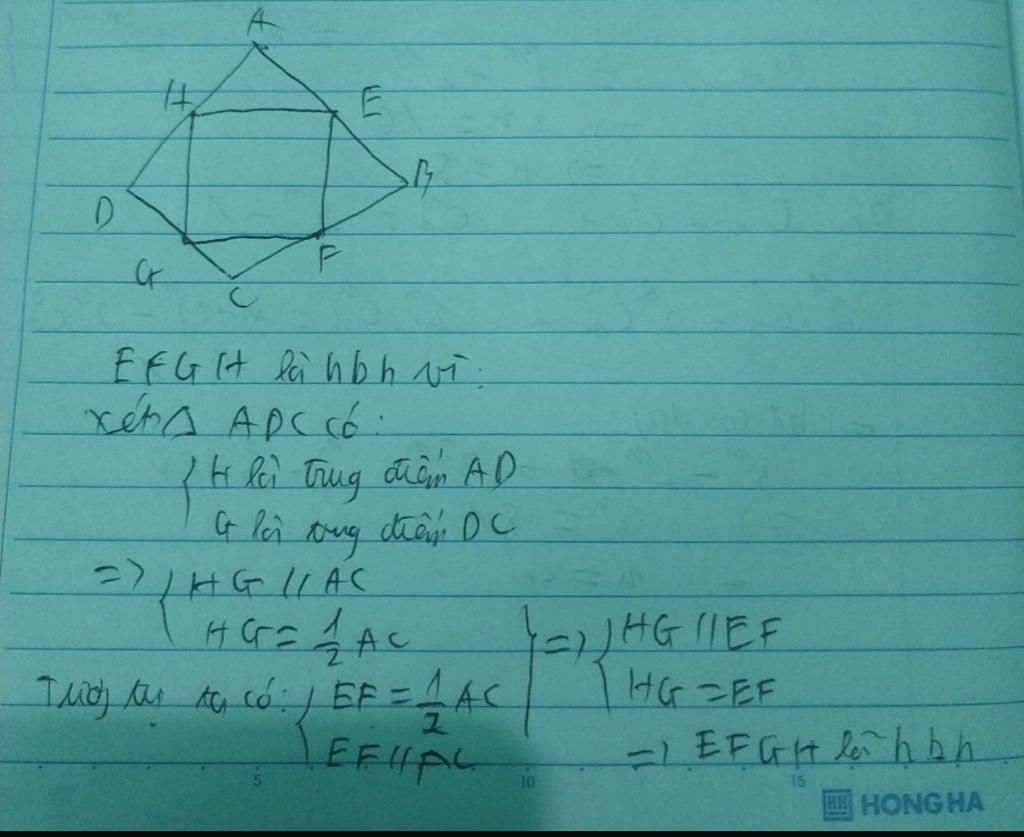 A
H
E
D
B
G
F
C
EFGH là hbh vì:
xét Δ ADC có:
H là trung điểm AD
G là trung điểm DC
=> HG // AC
HG = 1/2 AC
=> HG // EF
HG = EF
Tương tự ta có: EF = 1/2 AC
EF // AC
=> EFGH là hbh
5 10 15
HH HONG HA